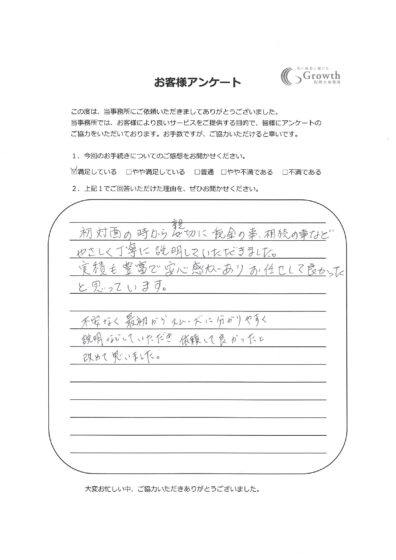 Growth
お客様アンケート
この度は、当事務所にご依頼いただきましてありがとうございました。
当事務所では、お客様により良いサービスをご提供する目的で、皆様にアンケートの
ご協力をいただいております。お手数ですが、ご協力いただけると幸いです。
1．今回のお手続きについてのご感想をお聞かせください。
☑満足している　□やや満足している　□普通　□やや不満である　□不満である
2．上記1でご回答いただけた理由を、ぜひお聞かせください。
初対面の時から親切に 税金の事、相続の事など
やさしく丁寧に説明していただきました。
実績も豊富で安心感がありお任せして良かった
と思っています。
不安なく最初からスムーズに分かりやすく
説明などしていただき 依頼して良かったと
改めて思いました。
大変お忙しい中、ご協力いただきありがとうございました。